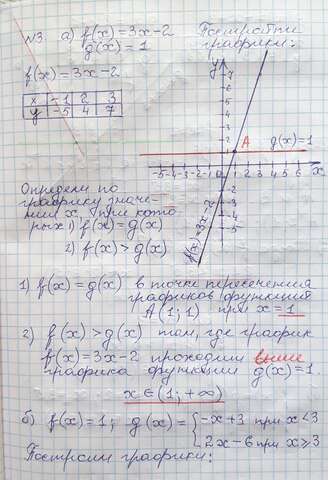 №3. а) f(x) = 3x-2
g(x) = 1
Построить графики:
f(x) = 3x-2
x -1 2 3
y -5 4 7
y
7
6
5
4
3
2
1
A
g(x)=1
-5 -4 -3 -2 -1 0 1 2 3 4 5 6 x
-1
-2
-3
-4
-5
f(x) = 3x-2
Определи по
графику значе-
ния x, при кото-
рых 1) f(x) = g(x)
2) f(x) > g(x)
1) f(x) = g(x) в точке пересечения
графиков функций
A (1; 1) при x = 1
2) f(x) > g(x) там, где график
f(x) = 3x-2 проходит выше
графика функции g(x) = 1.
x ∈ (1; +∞)
б) f(x) = 1; g(x) = { -x+3 при x<3
2x-6 при x⩾3
Построим графики: